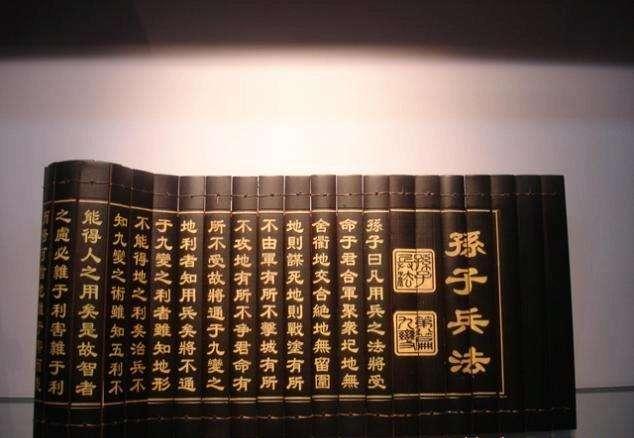 孫子兵法
孫子曰凡用兵之法將受
命于君合軍聚衆圮地無
舍衢地交合絶地無留圍
地則謀死地則戰塗有所
不由軍有所不擊城有所
不攻地有所不争君命有
所不受故將通于九變之
地利者知用兵矣將不通
于九變之利者雖知地形
不能得地之利矣治兵不
知九變之術雖知五利不
能得人之用矣是故智者
之慮必雜于利害雜于利